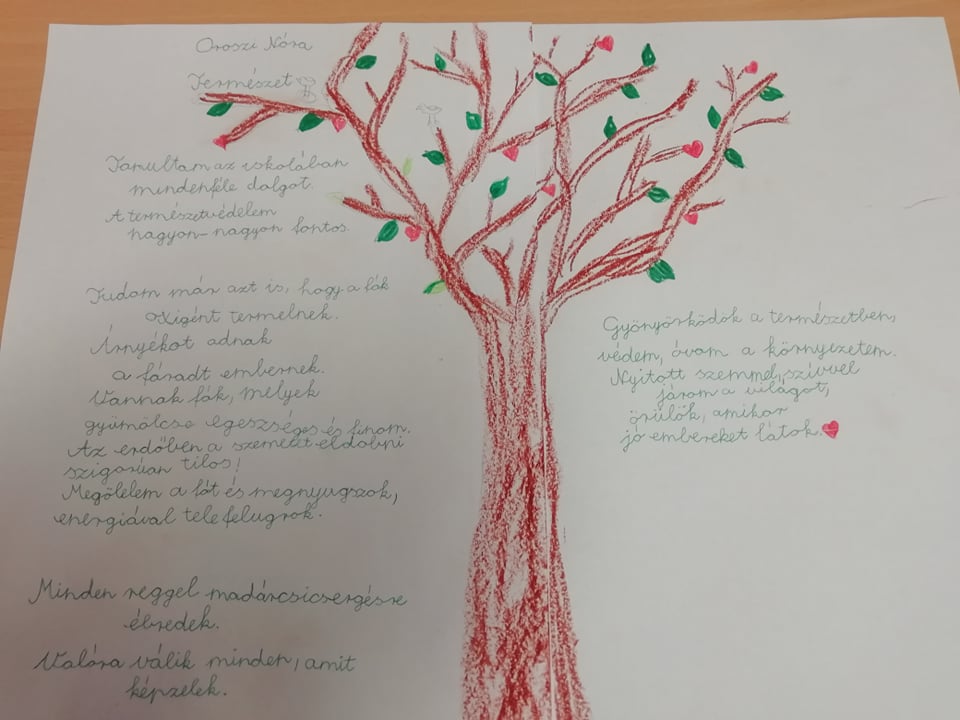 Oroszi Nóra
Természet
Tanultam az iskolában
mindenféle dolgot.
A természetvédelem
nagyon-nagyon fontos.
Tudom már azt is, hogy a fák
oxigént termelnek.
Árnyékot adnak
a fáradt embernek.
Vannak fák, melyek
gyümölcse egészséges és finom.
Az erdőben a szemetet eldobni
szigorúan tilos!
Megölelem a fát és megnyugszok,
energiával tele felugrok.
Minden reggel madárcsicsergésre
ébredek.
Valóra válik minden, amit
képzelek.
Gyönyörködök a természetben,
védem, óvom a környezetem.
Nyitott szemmel, szívvel
járom a világot,
örülök, amikor
jó embereket látok.